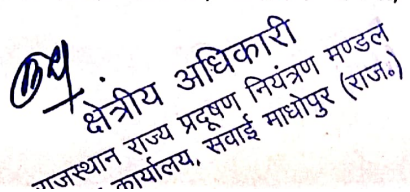 क्षेत्रीय अधिकारी
राजस्थान राज्य प्रदूषण नियंत्रण मण्डल
कार्यालय, सवाई माधोपुर (राज॰)